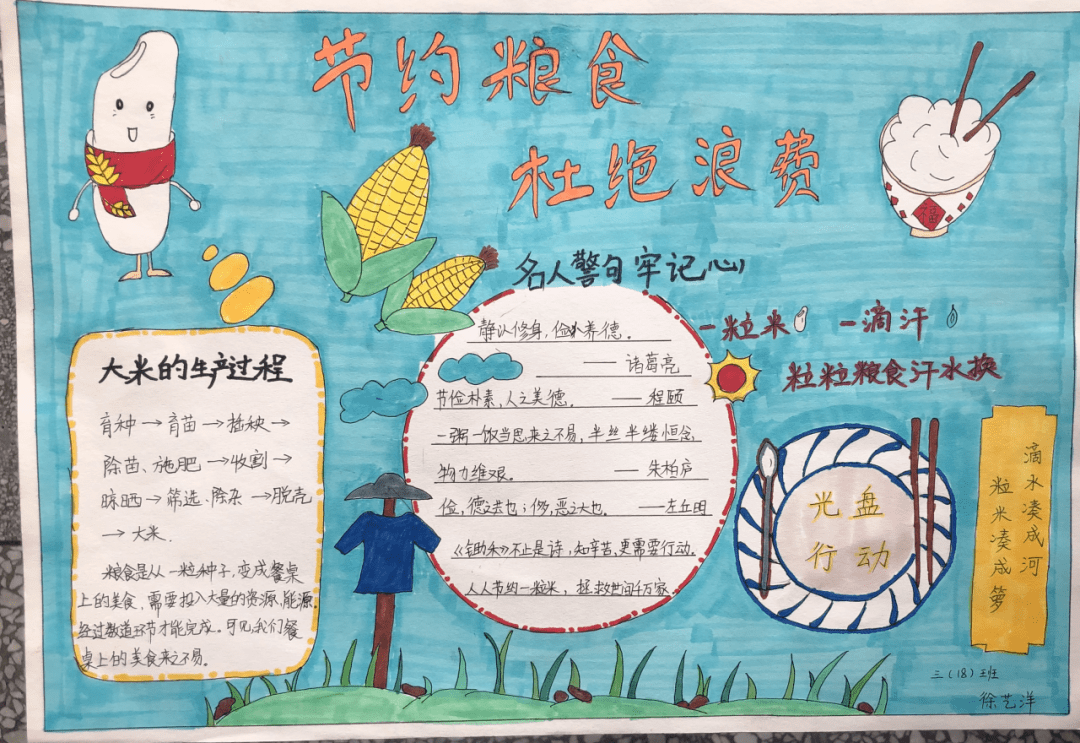 节约粮食
杜绝浪费
福
名人警句牢记心
静以修身,俭以养德。
——诸葛亮
节俭朴素,人之美德。——程颐
一粥一饭当思来之不易,半丝半缕恒念
物力维艰。——朱柏庐
俭,德之共也;侈,恶之大也。——左丘明
《锄禾》不止是诗,知辛苦,更需要行动。
人人节约一粒米,拯救世间千万家
一粒米 一滴汗
粒粒粮食汗水换
大米的生产过程
育种→育苗→插秧→
除苗、施肥→收割→
晾晒→筛选、除杂→脱壳
→大米.
粮食是从一粒种子,变成餐桌
上的美食,需要投入大量的资源、能源.
经过数道环节才能完成。可见我们餐
桌上的美食来之不易.
光盘
行动
滴水凑成河
粒米凑成箩
三(18)班
徐艺洋